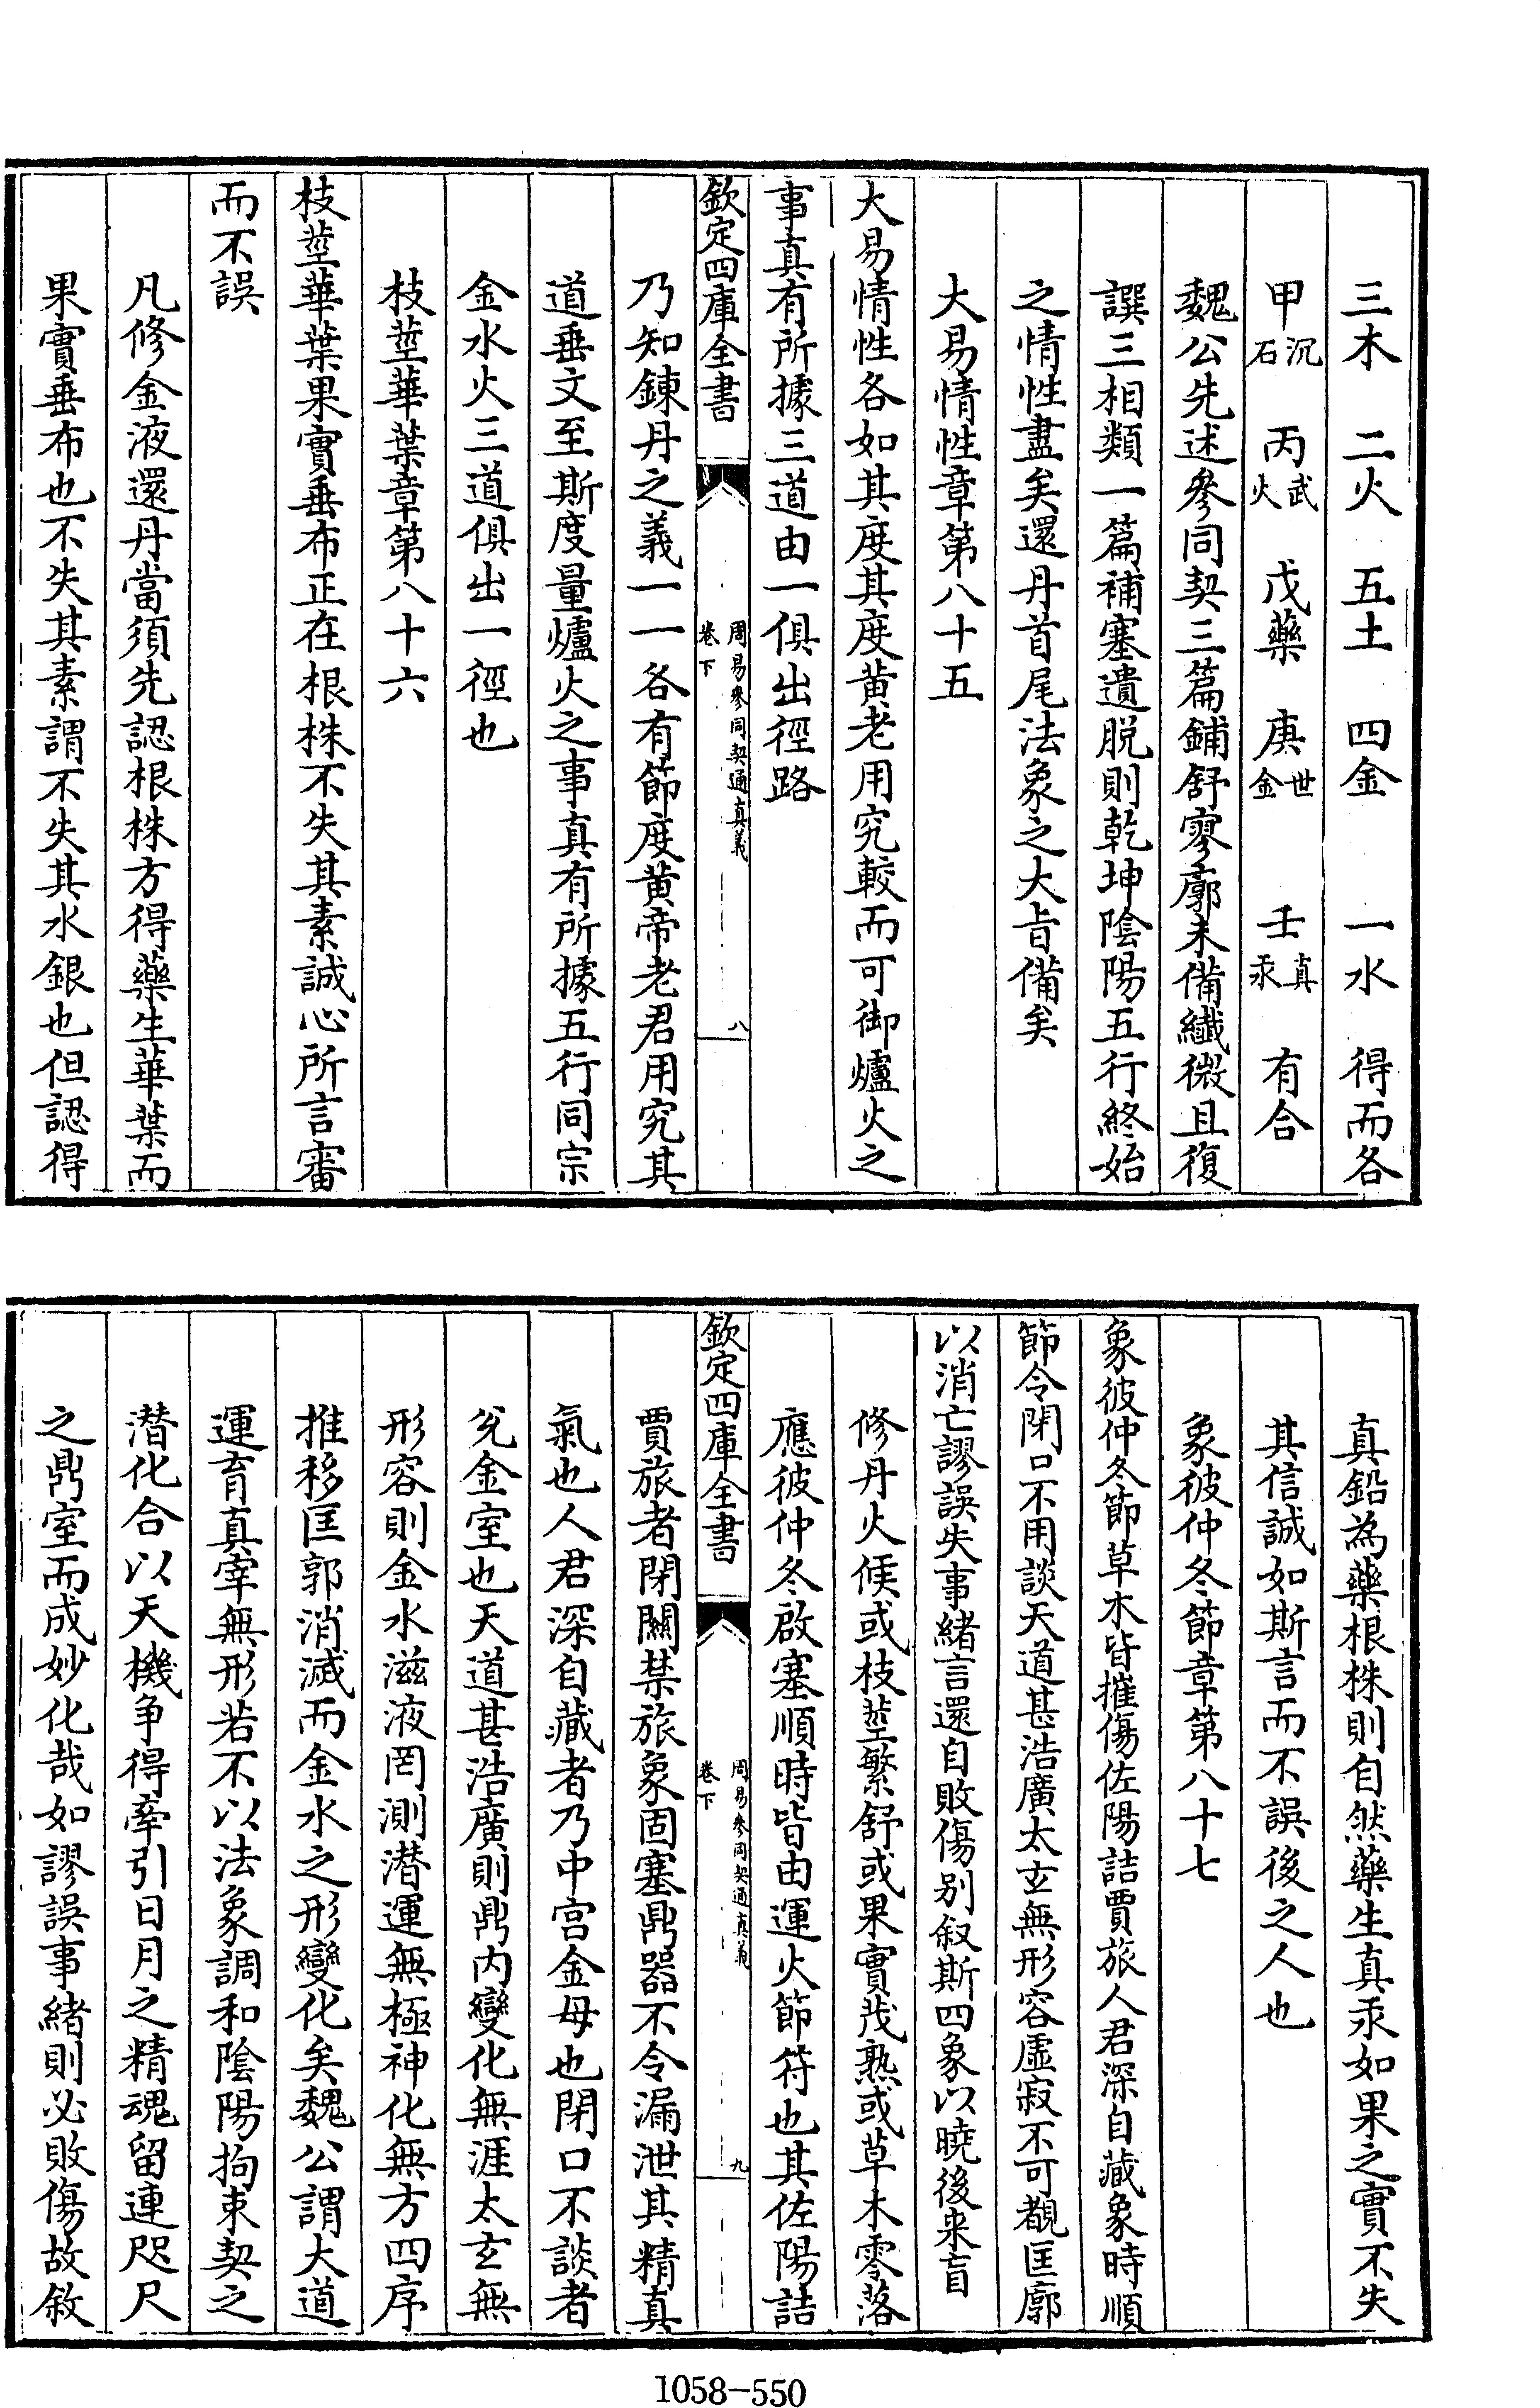 三木　二火　五土　四金　一水　得而各
甲沉石　丙武火　戊藥　庚世金　壬真汞　有合
魏公先述參同契三篇鋪舒寥廓未備纎微且復
譔三相類一篇補塞遺脱則乾坤陰陽五行終始
之情性盡矣還丹首尾法象之大㫖備矣
大易情性章第八十五
大易情性各如其度其度黄老用究較而可御爐火之
事真有所據三道由一俱出徑路
欽定四庫全書
周易參同契通真義
卷下
八
乃知鍊丹之義一一各有節度黄帝老君用究其
道垂文至斯度量爐火之事真有所據五行同宗
金水火三道俱出一徑也
枝莖華葉章第八十六
枝莖華葉果實垂布正在根株不失其素誠心所言審
而不誤
凡修金液還丹當須先認根株方得藥生華葉而
果實垂布也不失其素謂不失其水銀也但認得
真鉛為藥根株則自然藥生真汞如果之實不失
其信誠如斯言而不誤後之人也
象彼仲冬節章第八十七
象彼仲冬節草木皆摧傷佐陽詰賈旅人君深自藏象時順
節令閉口不用談天道甚浩廣太玄無形容虚寂不可覩匡廓
以消亡謬誤失事緒言還自敗傷别叙斯四象以曉後来盲
修丹火候或枝莖繁舒或果實茂熟或草木零落
應彼仲冬啟塞順時皆由運火節符也其佐陽詰
欽定四庫全書
周易參同契通真義
卷下
九
賈旅者閉關禁旅象固塞鼎器不令漏泄其精真
氣也人君深自藏者乃中宫金母也閉口不談者
兊金室也天道甚浩廣則鼎内變化無涯太玄無
形容則金水滋液罔測潜運無極神化無方四序
推移匡郭消滅而金水之形變化矣魏公謂大道
運育真宰無形若不以法象調和陰陽拘束契之
潜化合以天機争得牽引日月之精魂留連咫尺
之鼎室而成妙化哉如謬誤事緒則必敗傷故敘
1058-550